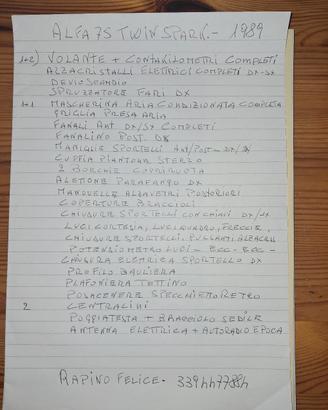 ALFA 75 TWIN SPARK.- 1989
1+2) VOLANTE + CONTAKILOMETRI COMPLETI
ALZACRISTALLI ELETTRICI COMPLETI DX-DX
DEVIOSGANCIO
SPRUZZATORE FARI DX
1+1 MASCHERINA ARIA CONDIZIONATA COMPLETA
GRIGLIA PRESA ARIA
FANALI ANT DX/SX COMPLETI
FANALINO POST. DX
MANIGLIE SPORTELLI ANT/POST- DX/SX
CUFFIA PIANTONE STERZO
2 BORCHIE COPRIRUOTA
ALETTONE PARAFANGO DX
MANOVELLE ALZAVETRI POSTERIORI
COPERTURE BRACCIOLI
CHIUSURE SPORTELLI CON CHIAVI DX/SX
LUCI CORTESIA, LUCI QUADRO, FRECCIE,
CHIUSURE SPORTELLI. PULSANTI ALZACRIS
POTENZIOMETRO LUCI - ECC- ECC-
CHIUSURA ELETTRICA SPORTELLO DX
PROFILO BAULIERA
PLAFONIERA TETTINO
POSACENERE SPECCHIETTO RETRO
2 CENTRALINI
POGGIATESTA + BRACCIOLO SEDILE
ANTENNA ELETTRICA + AUTORADIO EPOCA
RAPINO FELICE.